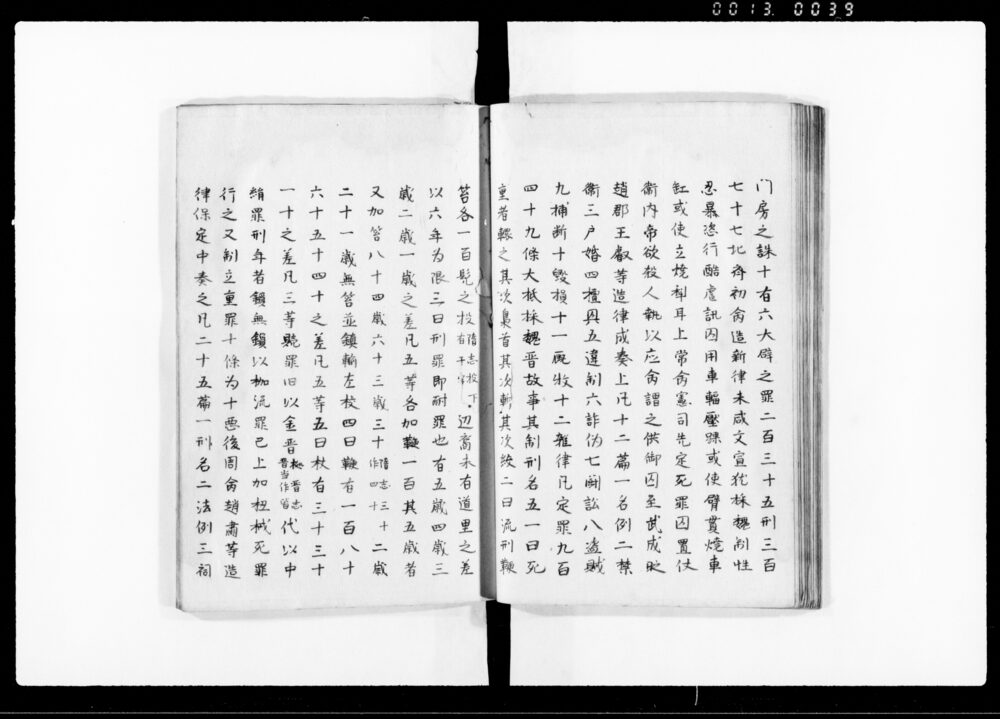 0013 0039
门房之誅十有六大辟之罪二百三十五刑三百
七十七北斉初命造新律未成文宣犹採魏制性
忍暴恣行酷虐訊囚用車輻壓踝或使臂貫燒車
釭或使立燒犁耳上常命憲司先定死罪囚置仗
衛内帝欲殺人執以应命謂之供御囚至武成時
趙郡王叡等造律成奏上凡十二篇一名例二禁
衛三户婚四擅興五違制六詐伪七闘訟八盗賊
九捕断十毀損十一厩牧十二雜律凡定罪九百
四十九條大抵採魏晋故事其制刑名五一曰死
重者轘之其次梟首其次斬其次絞二曰流刑鞭
笞各一百髡之投隋志投下有于字边裔未有道里之差
以六年为限三曰刑罪即耐罪也有五歳四歳三
歳二歳一歳之差凡五等各加鞭一百其五歳者
又加笞八十四歳六十三歳三十隋志三十作四十二歳
二十一歳無笞並鎮輸左校四曰鞭有一百八十
六十五十四十之差凡五等五曰杖有三十三十
一十之差凡三等贖罪旧以金晋按晋志晋当作皆代以中
絹罪刑年者鎖無鎖以枷流罪已上加杻械死罪
行之又制立重罪十條为十悪後周命趙肅等造
律保定中奏之凡二十五篇一刑名二法例三祠